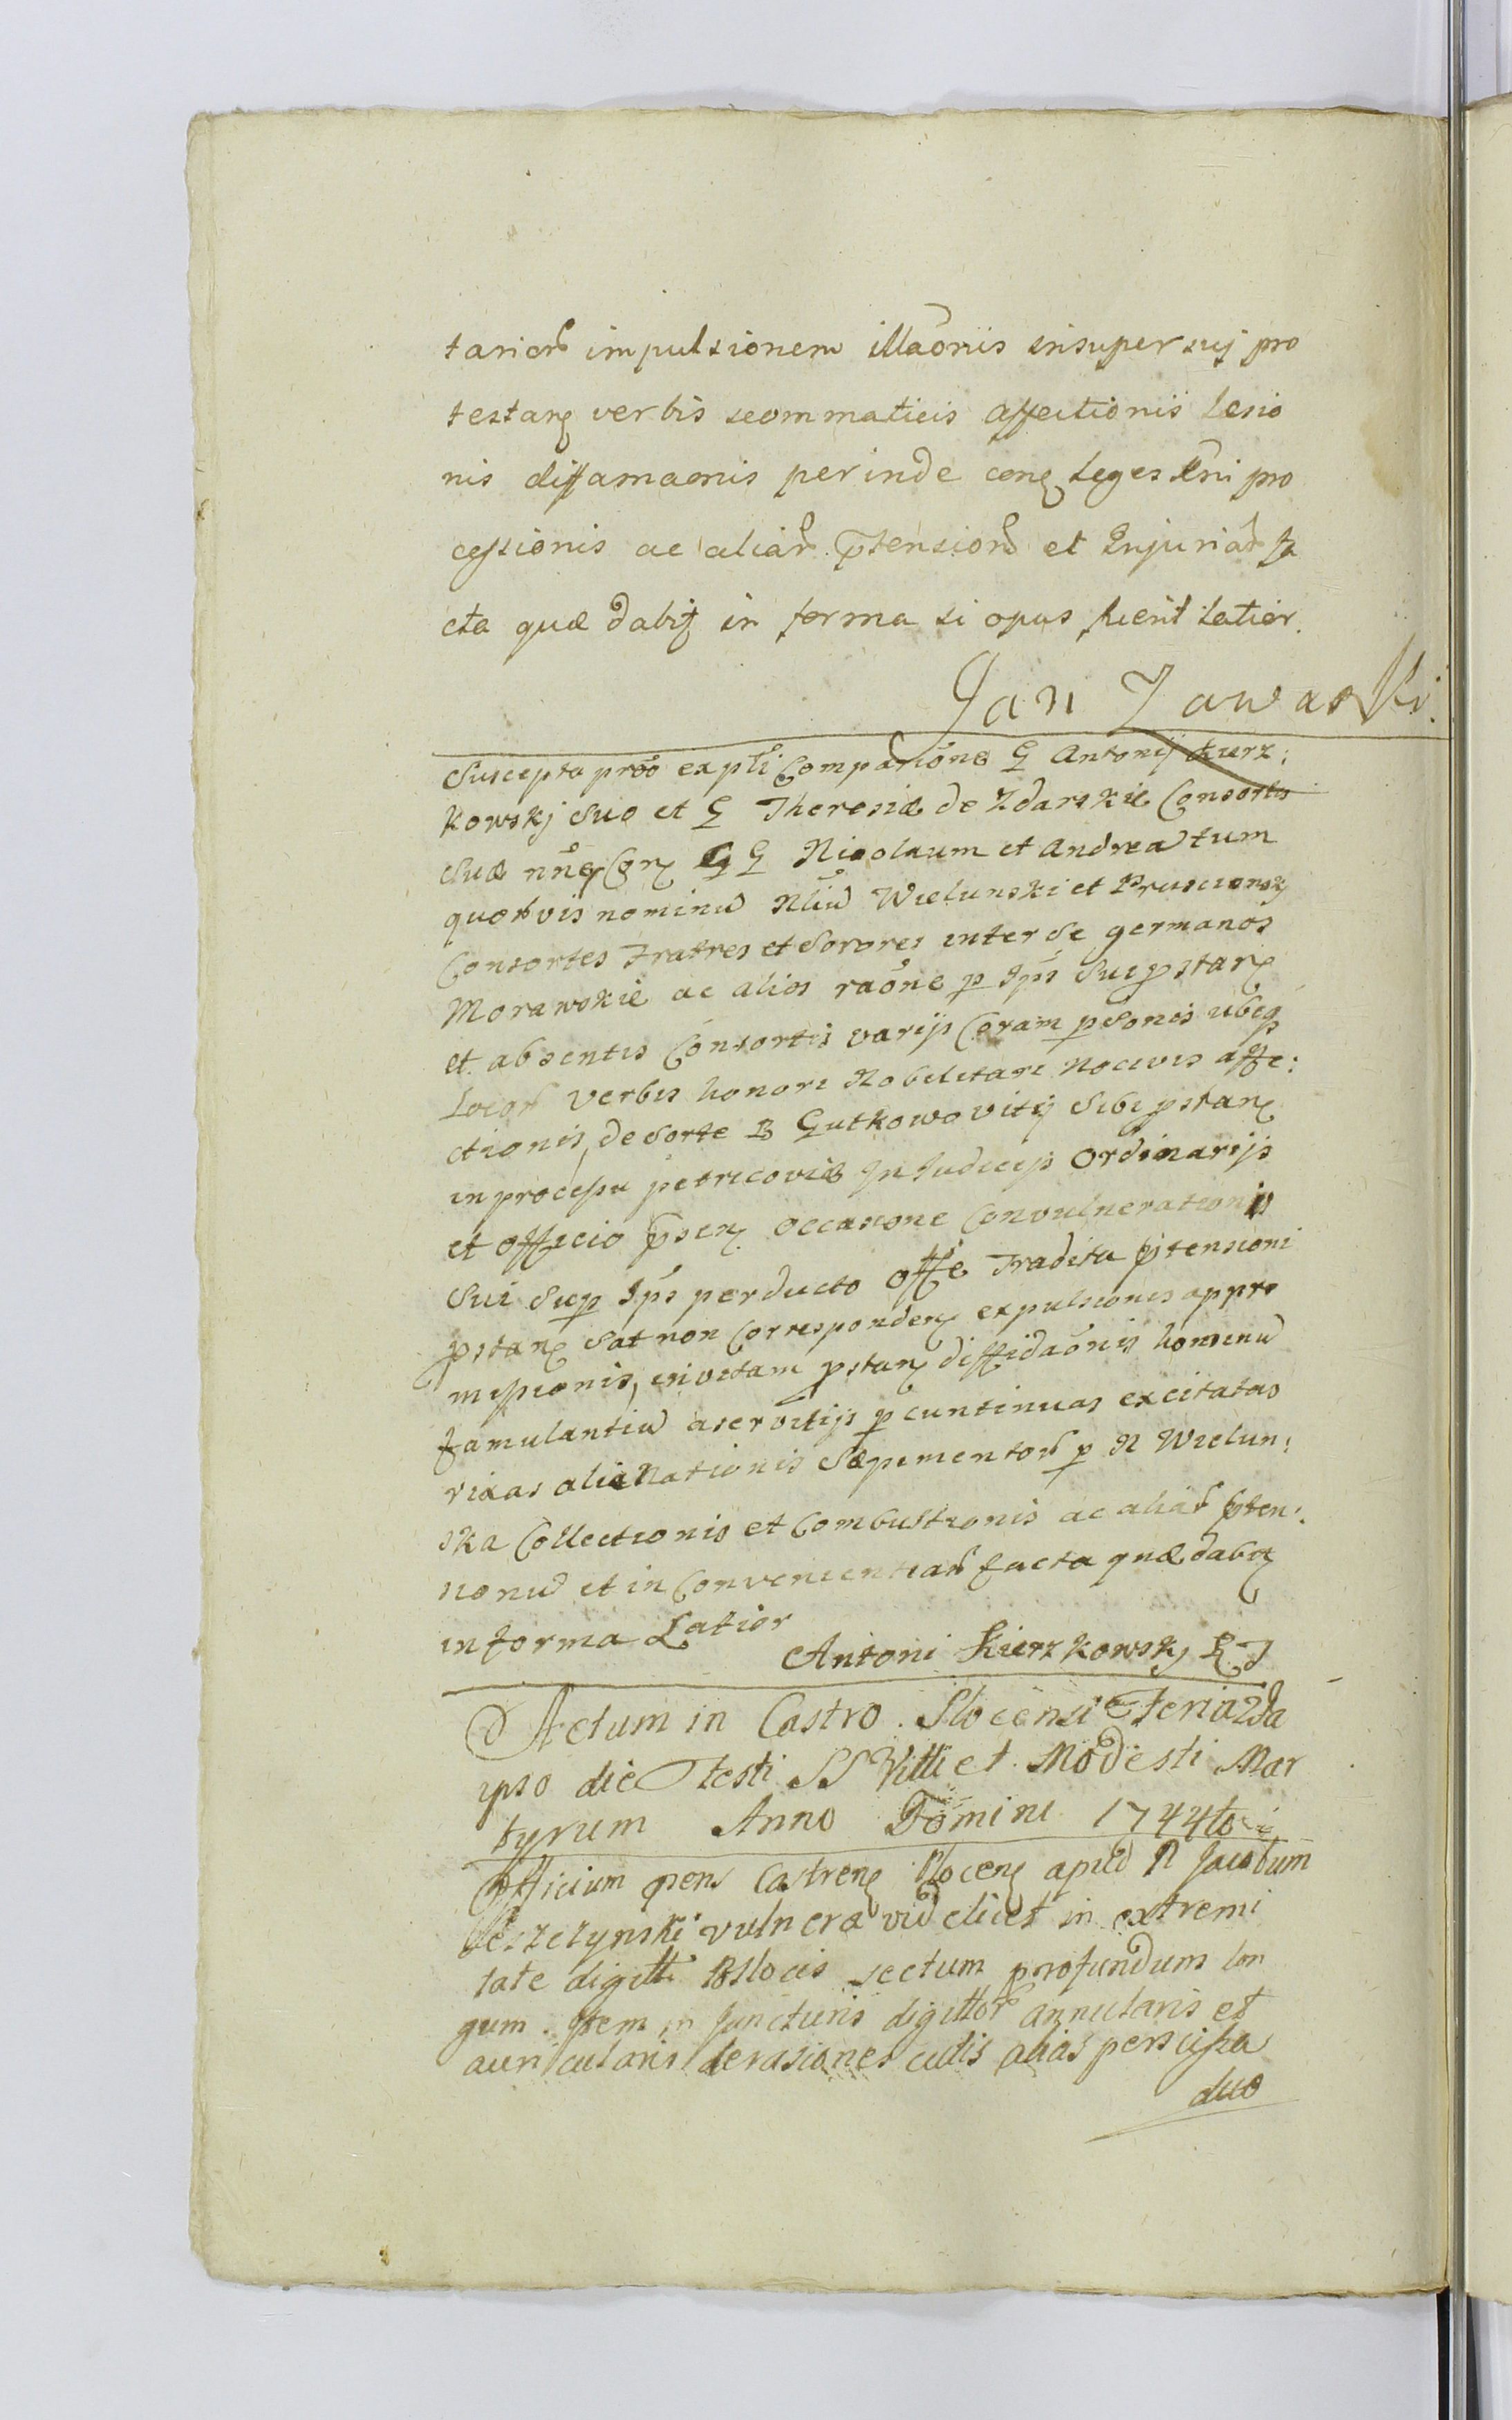 tarior̃ impulsionem illãonis insuper suj pro
testanţ verbis scommaticis affectionis Lesio
nis diffamaonis perinde conţ Leges r̃ni pro
cessionis ac aliar̃ p̃tension̄ et Injuriar̃ fa
cta quæ dabitʒ in forma si opus fuerit Latior.
Jan Zawaski.
Suscepta pro͠o expl̃i Comparõne G Antonij Kierz:
kowskj Suo et G Theresiæ de Zdarskie Consortis
Suæ nñe Conţ G G Nicolaum et Andrea tum
quor̃vis nominũ Nliũ Wielunski et Pruscienskj
Consortes Fratres et Sorores inter Se germanos
Morawskie ac alios raõne p Ips̃ Sui pstanţ
et absentis Consortis varijs Coram psonis ubiq
Locor̃ verbis honori Nobilitari nocivis affe:
ctionis, de Sorte B Gutkowo vitỹ Sibi pstanţ
in processu petricoviæ In Judicijs Ordinarijs
et officio p̃senţ occasione Convulnerationis
Sui Sup Ips̃ perducto offẽ Tradita p̃tensioni
pstanţ Sat non Correspondenţ expulsionis appro
missionis, in vitam pstanţ diffidaõnis hominũ
famulantiũ aservitijs p cuntinuas excitatas
rixas alienationis Sæpimentor̃ p N Wielun:
ska Collectionis et Combustionis ac aliar̃ p̃ten:
sionũ et in Convenientiar̃ facta quæ dabitʒ
in forma Latior
Antoni Kierzkowskj
Actum in Castro. Plocensi Feria 2da
ipso die Festi SS Vitti et Modesti Mar
tyrum Anno Domini 1744to
Officium p̃ens Castrenţ Plocenţ apud N Jacobum
vulnera videlicet in extremi
tate digitti sectum profundum lon
gum. Item in Juncturis digittor̃ annularis et
auricularis derasiones cutis alias perscissa
duo